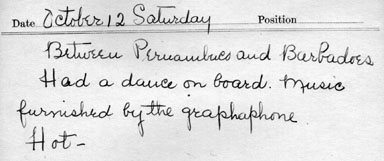 Date October 12 Saturday Position
Between Pernambuco and Barbadoes
Had a dance on board. Music
furnished by the graphaphone
Hot-